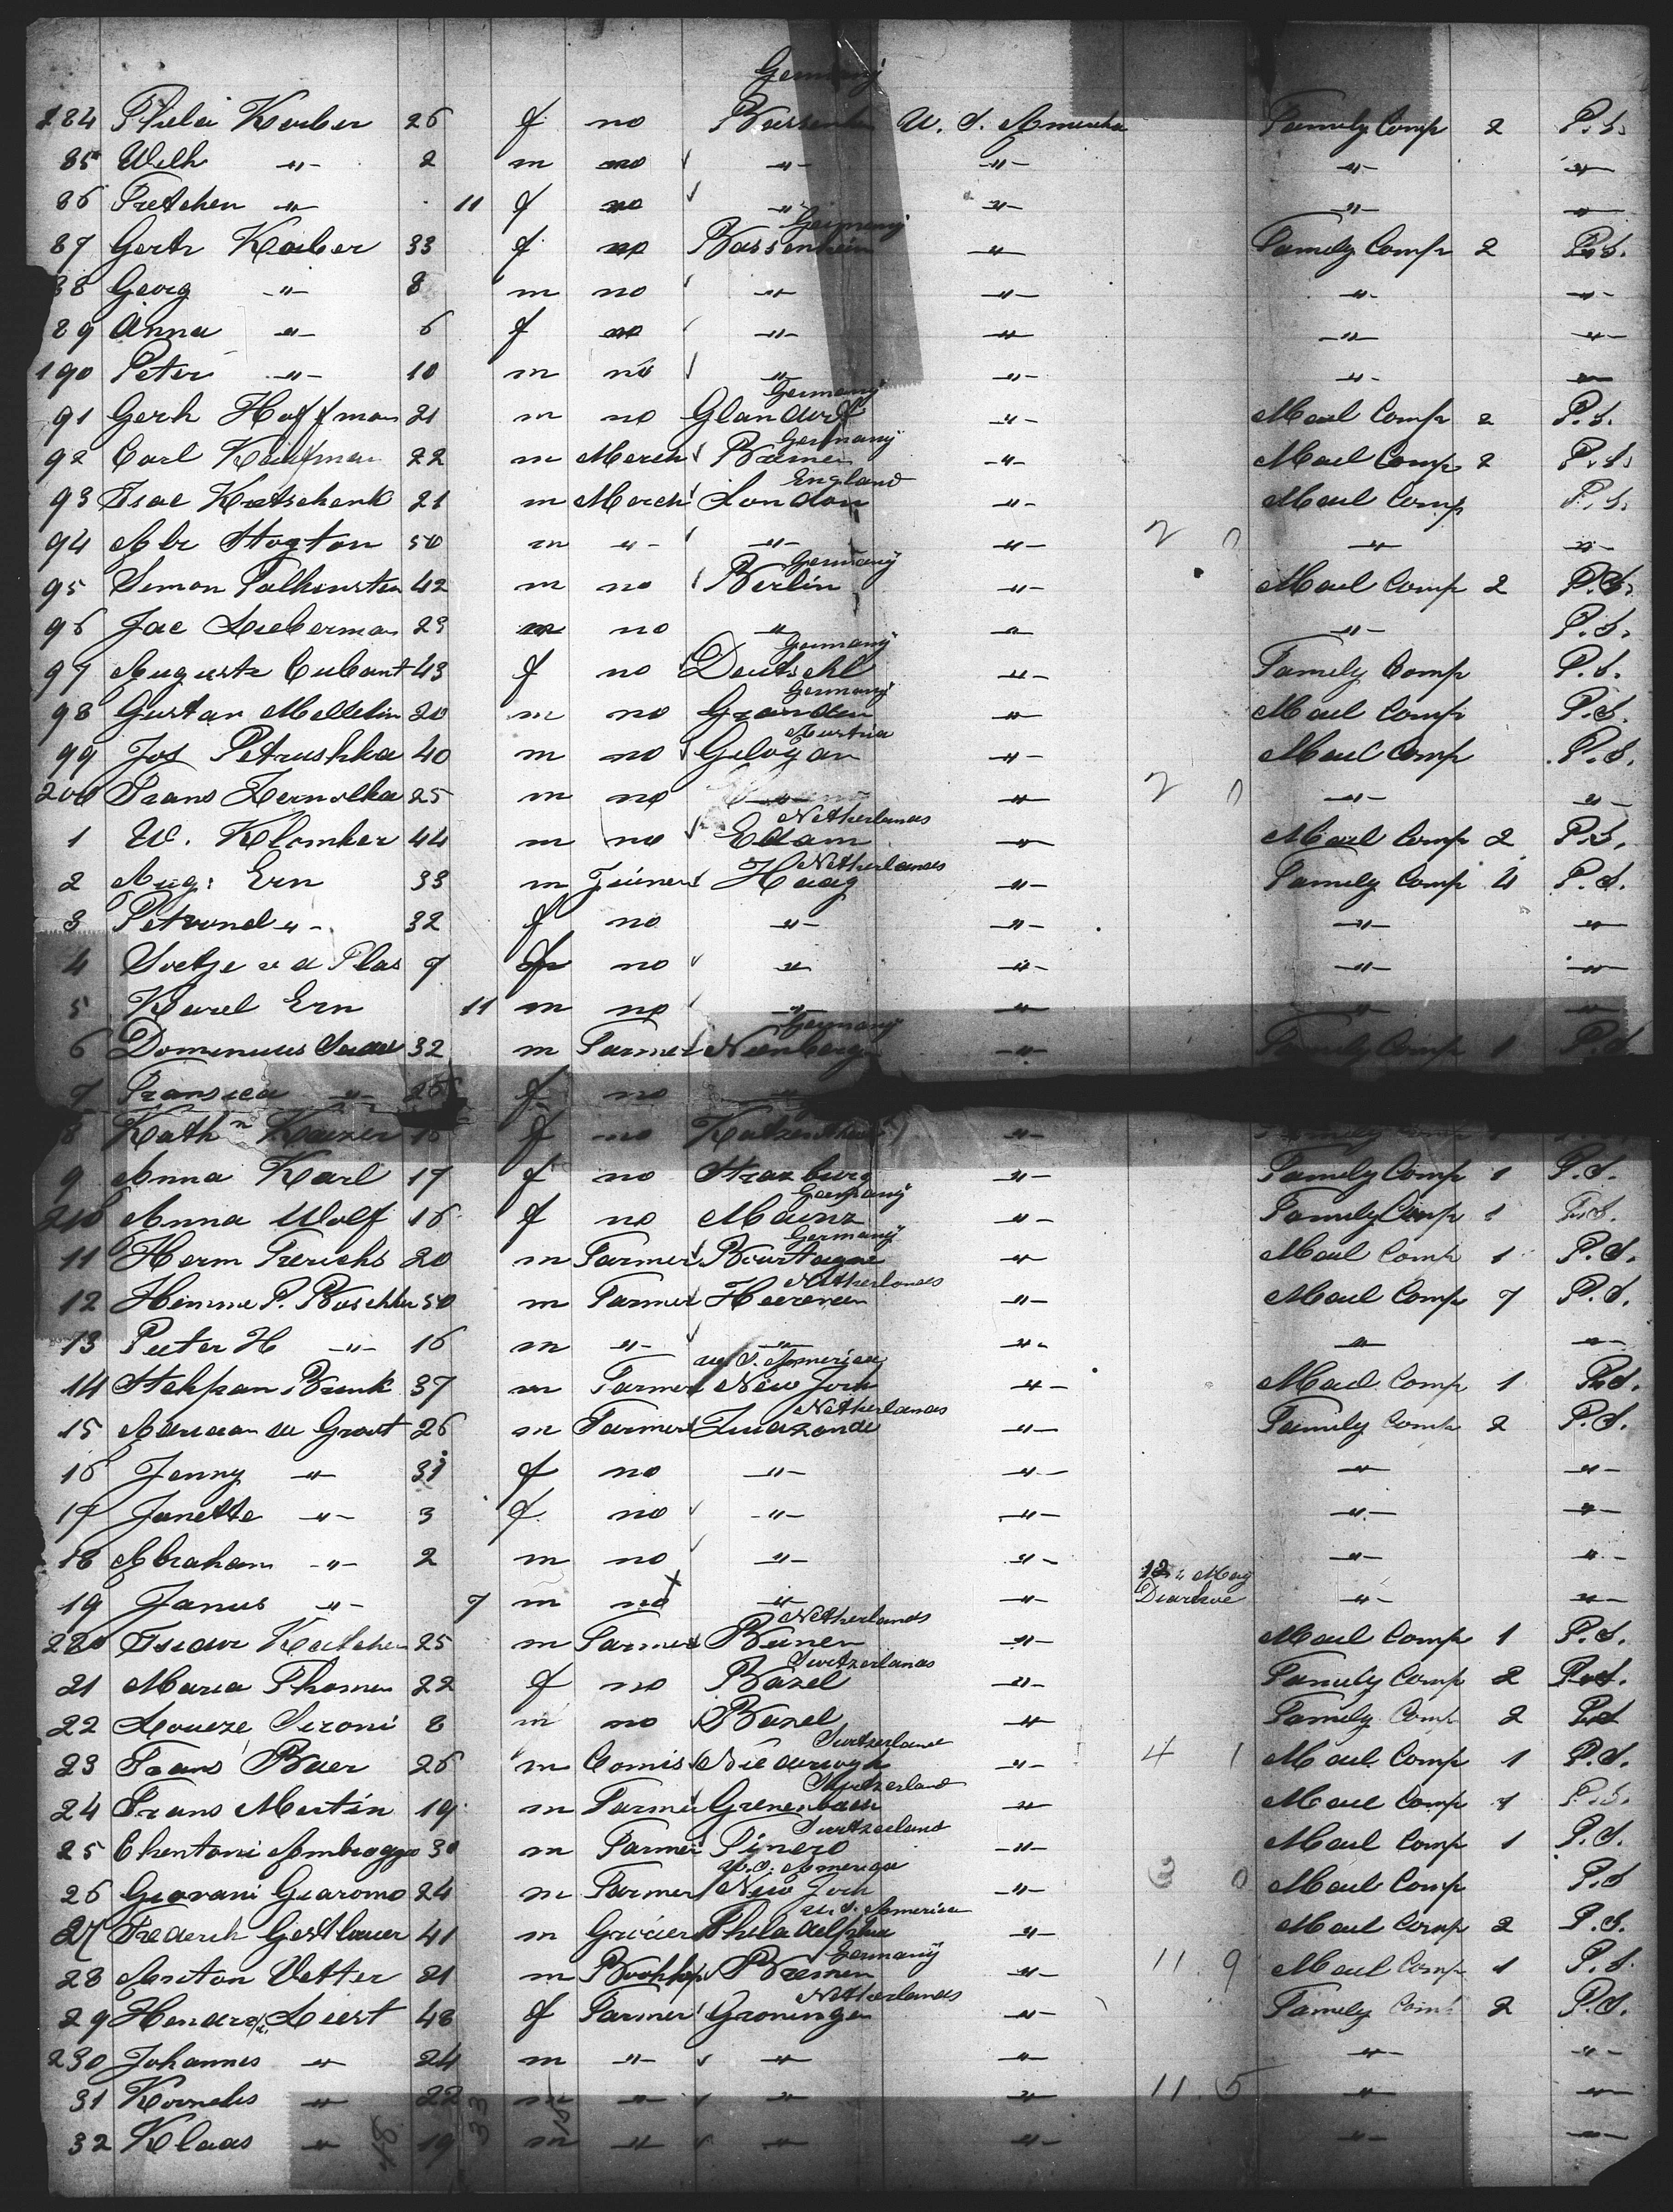 Germany
184 Kaiber 26 f no U. S. America Family Comp 2 P. S.
85 Wilh -"- 2 m no -"- -"- -"- -"-
86 Gretchen -"- 11 f no -"- -"- -"- -"-
Germany
87 Gertr Kaiber 33 f no Bassenheim -"- Family Comp 2 P. S.
88 Georg -"- 8 m no -"- -"- -"- -"-
89 Anna -"- 6 f no -"- -"- -"- -"-
190 Peter -"- 10 m no -"- -"- -"- -"-
Germany
91 Gerh Hoffman 21 m no Glandorf -"- Mael Comp 2 P. S.
Germany
92 Carl Kaufman 22 m Merch Bremen -"- Mael Comp 2 P. S.
England
93 Isac Kretschenk 21 m Merch London -"- Mael Comp P. S.
94 Abr Hogton 50 m -"- -"- -"- 2 0 -"- -"-
Germany
95 Simon Falkenstein 42 m no Berlin -"- Mael Comp 2 P. S.
96 Jac Lieberman 23 m no -"- -"- -"- P. S.
Germany
97 Auguste Cubant 43 f no Deutschl -"- Family Comp P. S.
Germany
98 Gustav 20 m no -"- Mael Comp P. S.
Austria
99 Jos Petrushka 40 m no -"- Mael Comp P. S.
200 Frans 25 m no -"- 2 0 -"- -"-
Netherlands
1 W. Klomker 44 m no Edam -"- Mael Comp 2 P. S.
Netherlands
2 Aug: Ern 33 m Haag -"- Family Comp 4 P. S.
3 Petronel -"- 32 f no -"- -"- -"- -"-
4 Soetje v d Plas 9 f no -"- -"- -"- -"-
5 Karel Ern 11 m no -"- -"- -"- -"-
Germany
6 32 m Farmer -"- Family Comp 1 P. S.
7 -"- f no
8 Kath n Kaizer f no -"-
9 Anna Karl 17 f no Strazburg -"- Family Comp 1 P. S.
Germany
210 Anna Wolf 16 f no Mainz -"- Family Comp 1 P. S.
Germany
11 Herm Frerichs 20 m Farmer -"- Mael Comp 1 P. S.
Netherlands
12 50 m Farmer Heereveen -"- Mael Comp 7 P. S.
13 Pieter H -"- 16 m -"- -"- -"- -"- -"-
U. S. America
14 Stehpan Brink 37 m Farmer New Jork -"- Mael Comp 1 P. S.
Netherlands
15 Adriaan de Groot 26 m Farmer Zuidzande -"- Family Comp 2 P. S.
16 Jenny -"- 31 f no -"- -"- -"- -"-
17 Janette -"- 3 f no -"- -"- -"- -"-
18 Abraham -"- 2 m no -"- -"- -"- -"-
12 May
19 Janus -"- 7 m no -"- -"- Diarhoe -"- -"-
Netherlands
220 25 m Farmer -"- Mael Comp 1 P. S.
Switzerlands
21 Maria Thomen 22 f no Bazel -"- Family Comp 2 P. S.
22 8 m no Bazel -"- Family Comp 2 P. S.
Switzerland
23 Frans Baer 26 m Comis -"- 4 1 Mael Comp 1 P. S.
Switzerland
24 Frans Martin 19 m Farmer Grenenbach -"- Mael Comp 1 P. S.
Switzerland
25 Ambroggio 30 m Farmer -"- Mael Comp 1 P. S.
U. S. America
26 Giovani Giaromo 24 m Farmer New Jork -"- 3 0 Mael Comp P. S
U. S. America
27 Frederik Gestlauer 41 m Philadelphia -"- Mael Comp 2 P. S.
Germany
28 Anton Vetter 21 m Bremen -"- 11. 9 Mael Comp 1 P. S.
Netherlands
29 48 f Farmer Groningen -"- Family Comp 2 P. S.
230 Johannes -"- 24 m -"- -"- -"- -"- -"-
31 Kornelis -"- 22 m -"- -"- -"- 11. 5 -"- -"-
32 Klaas -"- 19 m -"- -"- -"- -"- -"-